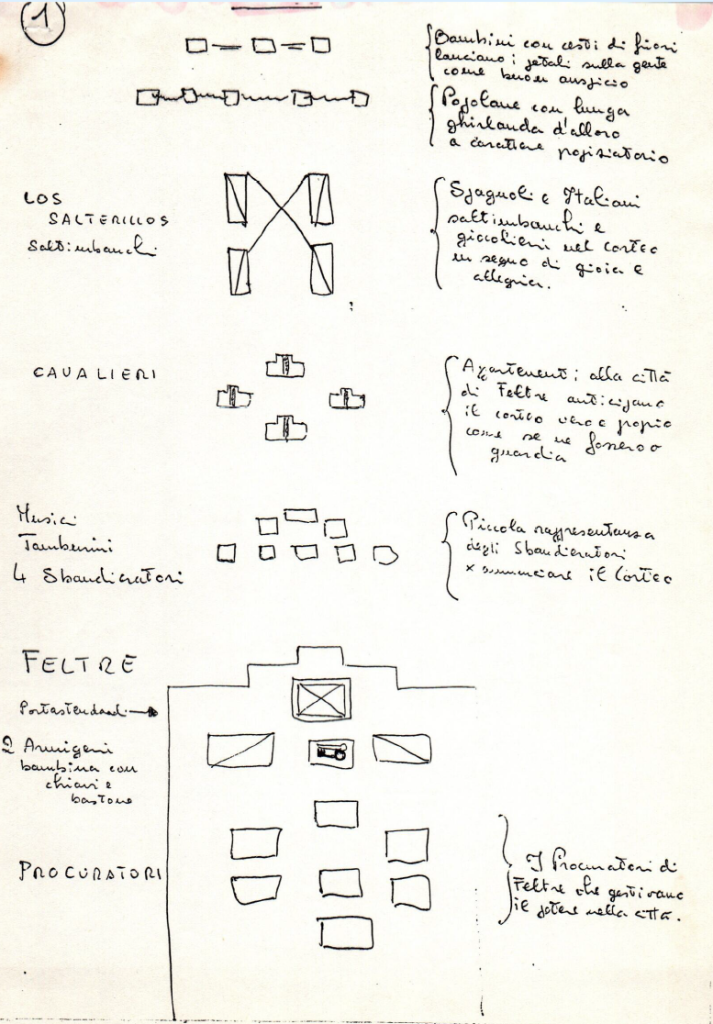 1
Bambini con cesti di fiori
lanciano i petali sulla gente
come buon auspicio
Popolane con lunga
ghirlanda d'alloro
a carattere propiziatorio
LOS
SALTERILLOS
Saltimbanchi
Spagnoli e Italiani
saltimbanchi e
giocolieri nel corteo
in segno di gioia e
allegria.
CAVALIERI
Appartenenti alla città
di Feltre anticipano
il corteo vero e proprio
come se ne fossero
guardia
Musici
Tamburini
4 Sbandieratori
Piccola rappresentanza
degli Sbandieratori
x annunciare il Corteo
FELTRE
Portastendardi
2 Armigeri
bambina con
chiavi e
bastone
PROCURATORI
I Procuratori di
Feltre che gestivano
il potere nella città.